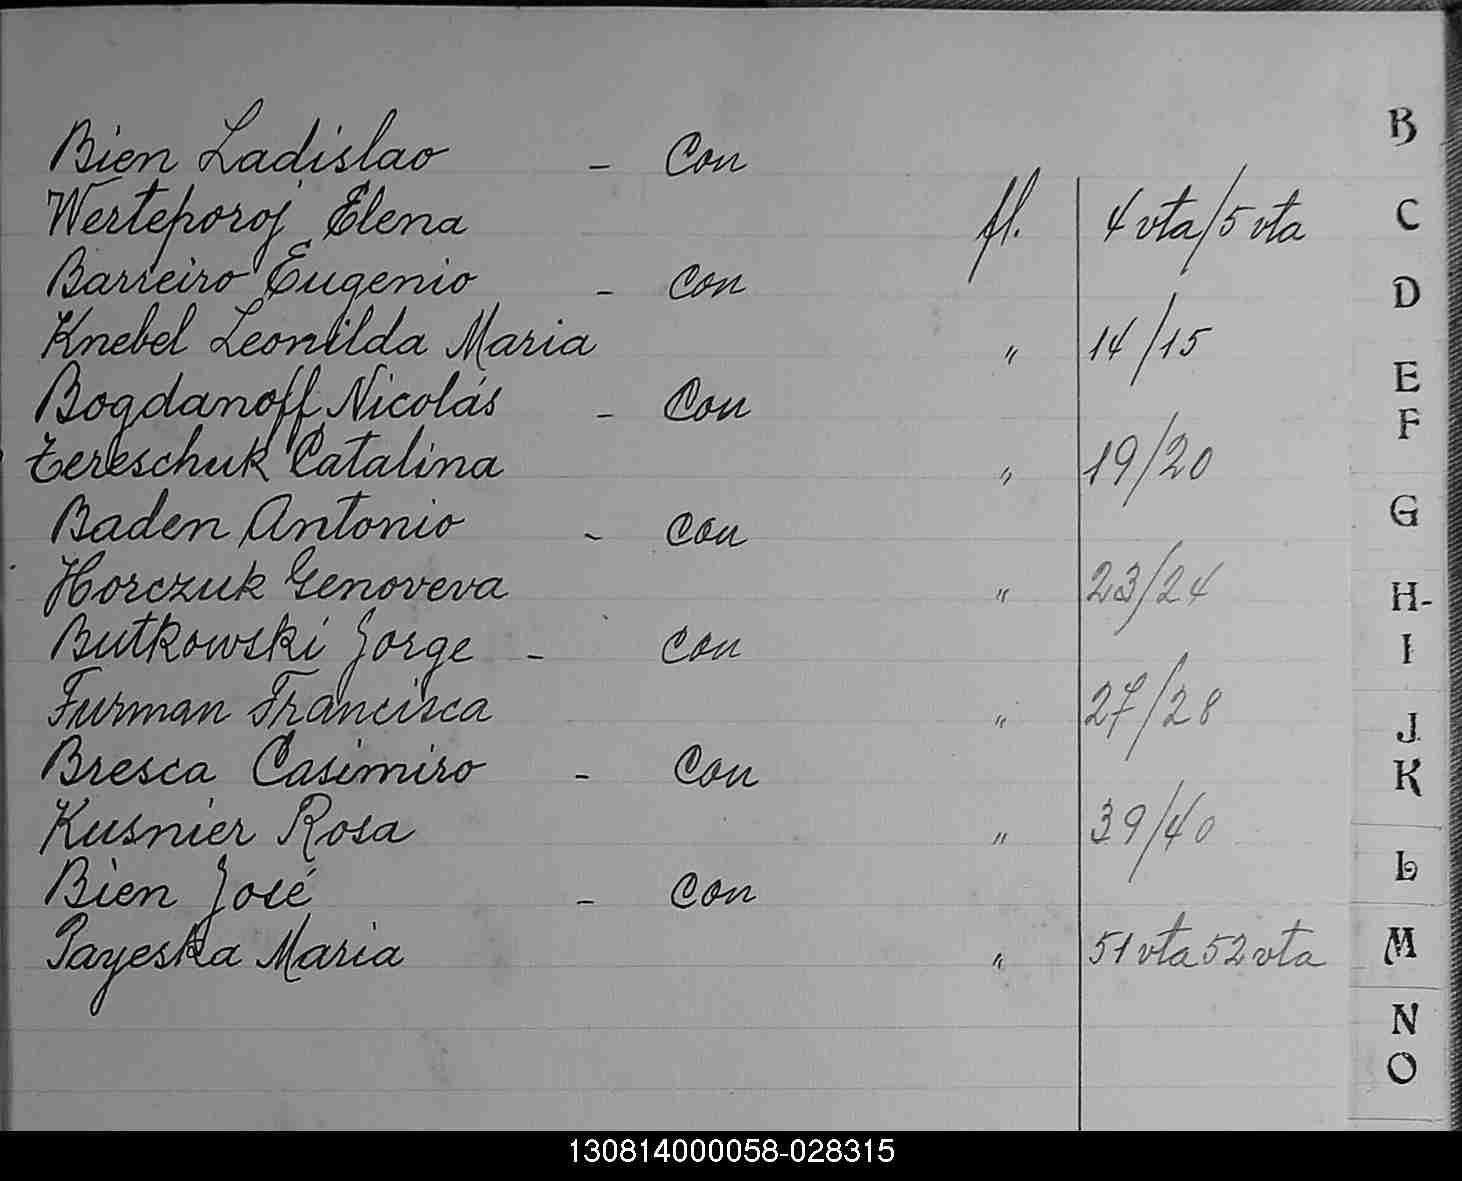 Bien Ladislao - Con
Werteporoj Elena fl. 4 vta/5 vta
Barreiro Eugenio - Con
Knebel Leonilda Maria " 14/15
Bogdanoff Nicolás - Con
Tereschuk Catalina " 19/20
Baden Antonio - Con
Horczuk Genoveva " 23/24
Butkowski Jorge - Con
Furman Francisca " 27/28
Bresca Casimiro - Con
Kusnier Rosa " 39/40
Bien José - Con
Payeska Maria " 51 vta 52 vta
B
C
D
E
F
G
H-
I
J
K
L
M
N
O
130814000058-028315